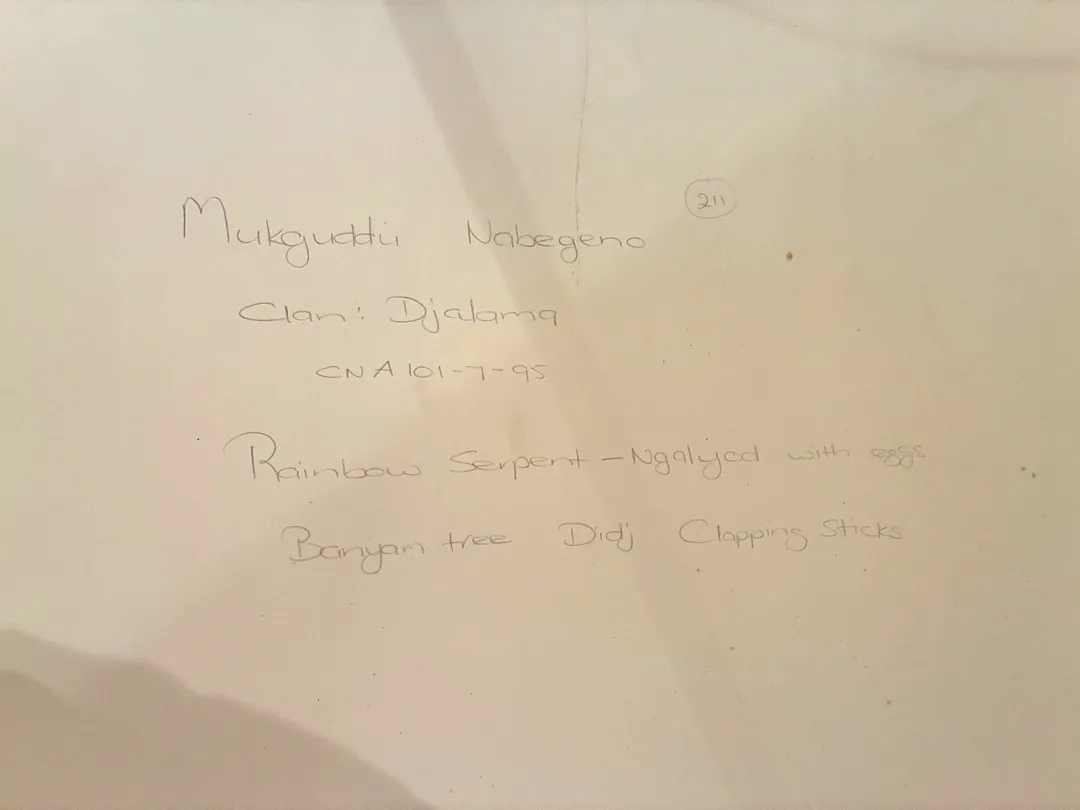 211
Mukguddu Nabegeno
Clan: Djalama
CNA 101-7-95
Rainbow Serpent - Ngalyod with eggs
Banyan tree Didj Clapping Sticks